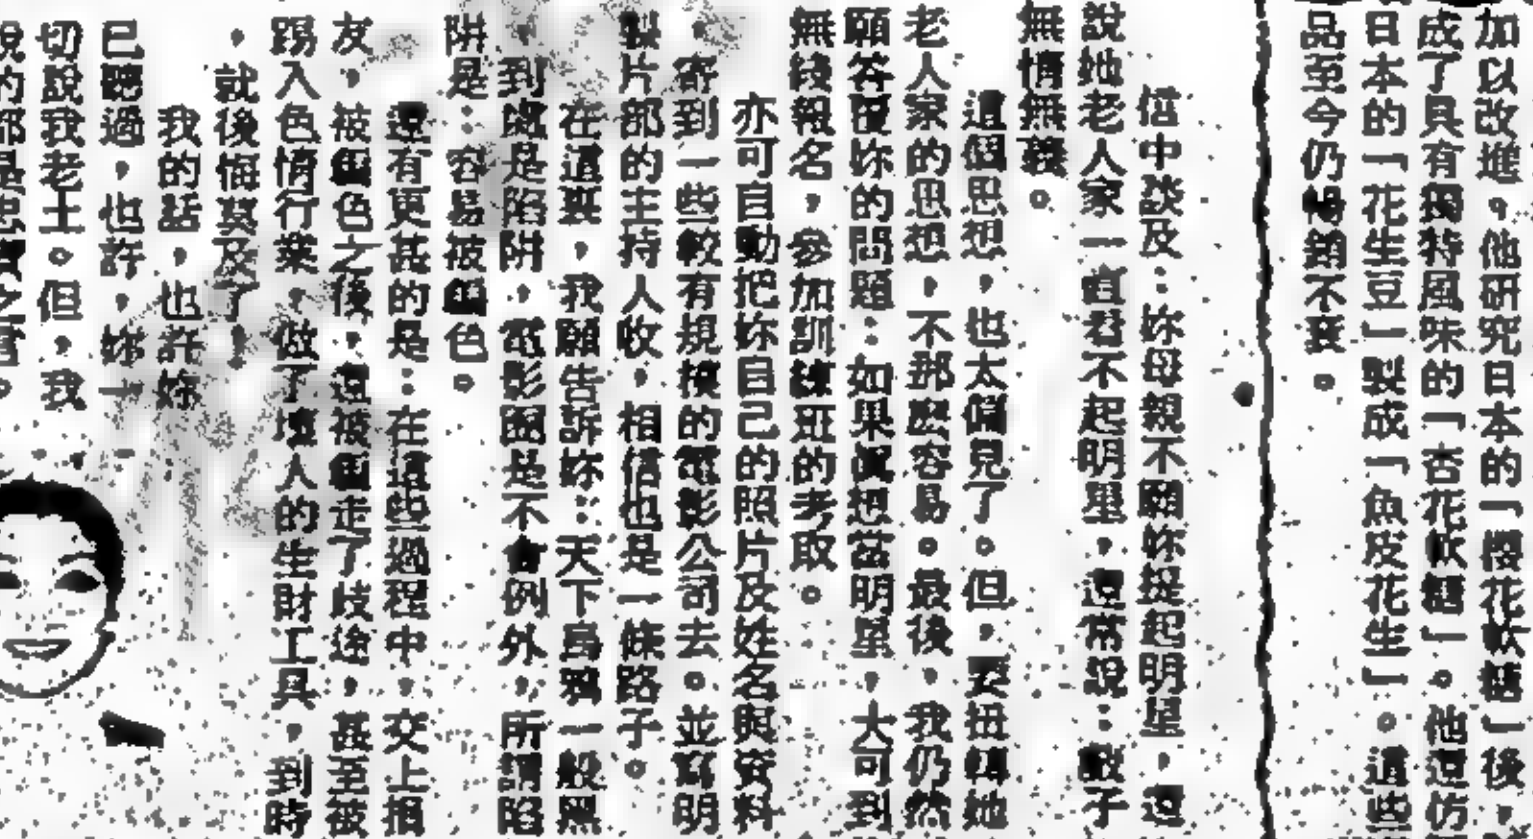 加以改進。他研究日本的「櫻花軟糖」後，
成了具有獨特風味的「杏花軟糖」。他還仿
日本的「花生豆」製成「魚皮花生」。這些
品至今仍暢銷不衰。
信中談及：妳母親不願妳提起明星，還
說她老人家一直看不起明星，還常說：戲子
無情無義。
這個思想，也太偏見了。但，要扭轉她
老人家的思想，不那麽容易。最後，我仍然
願答覆妳的問題：如果眞想當明星，大可到
無綫報名，參加訓練班的考取。
亦可自動把妳自己的照片及姓名與資料
，寄到一些較有規模的電影公司去。並寫明
製片部的主持人收，相信也是一條路子。
在這裏，我願告訴妳：天下烏鴉一般黑
，到處是陷阱，電影圈是不會例外，所謂陷
阱是：容易被騙色。
還有更甚的是：在這些過程中，交上損
友，被騙色之後，還被騙走了歧途，甚至被
踢入色情行業，做了壞人的生財工具，到時
，就後悔莫及了！
我的話，也許妳
已聽過，也許，妳一
切說我老土。但，我
說的都是忠實之言。